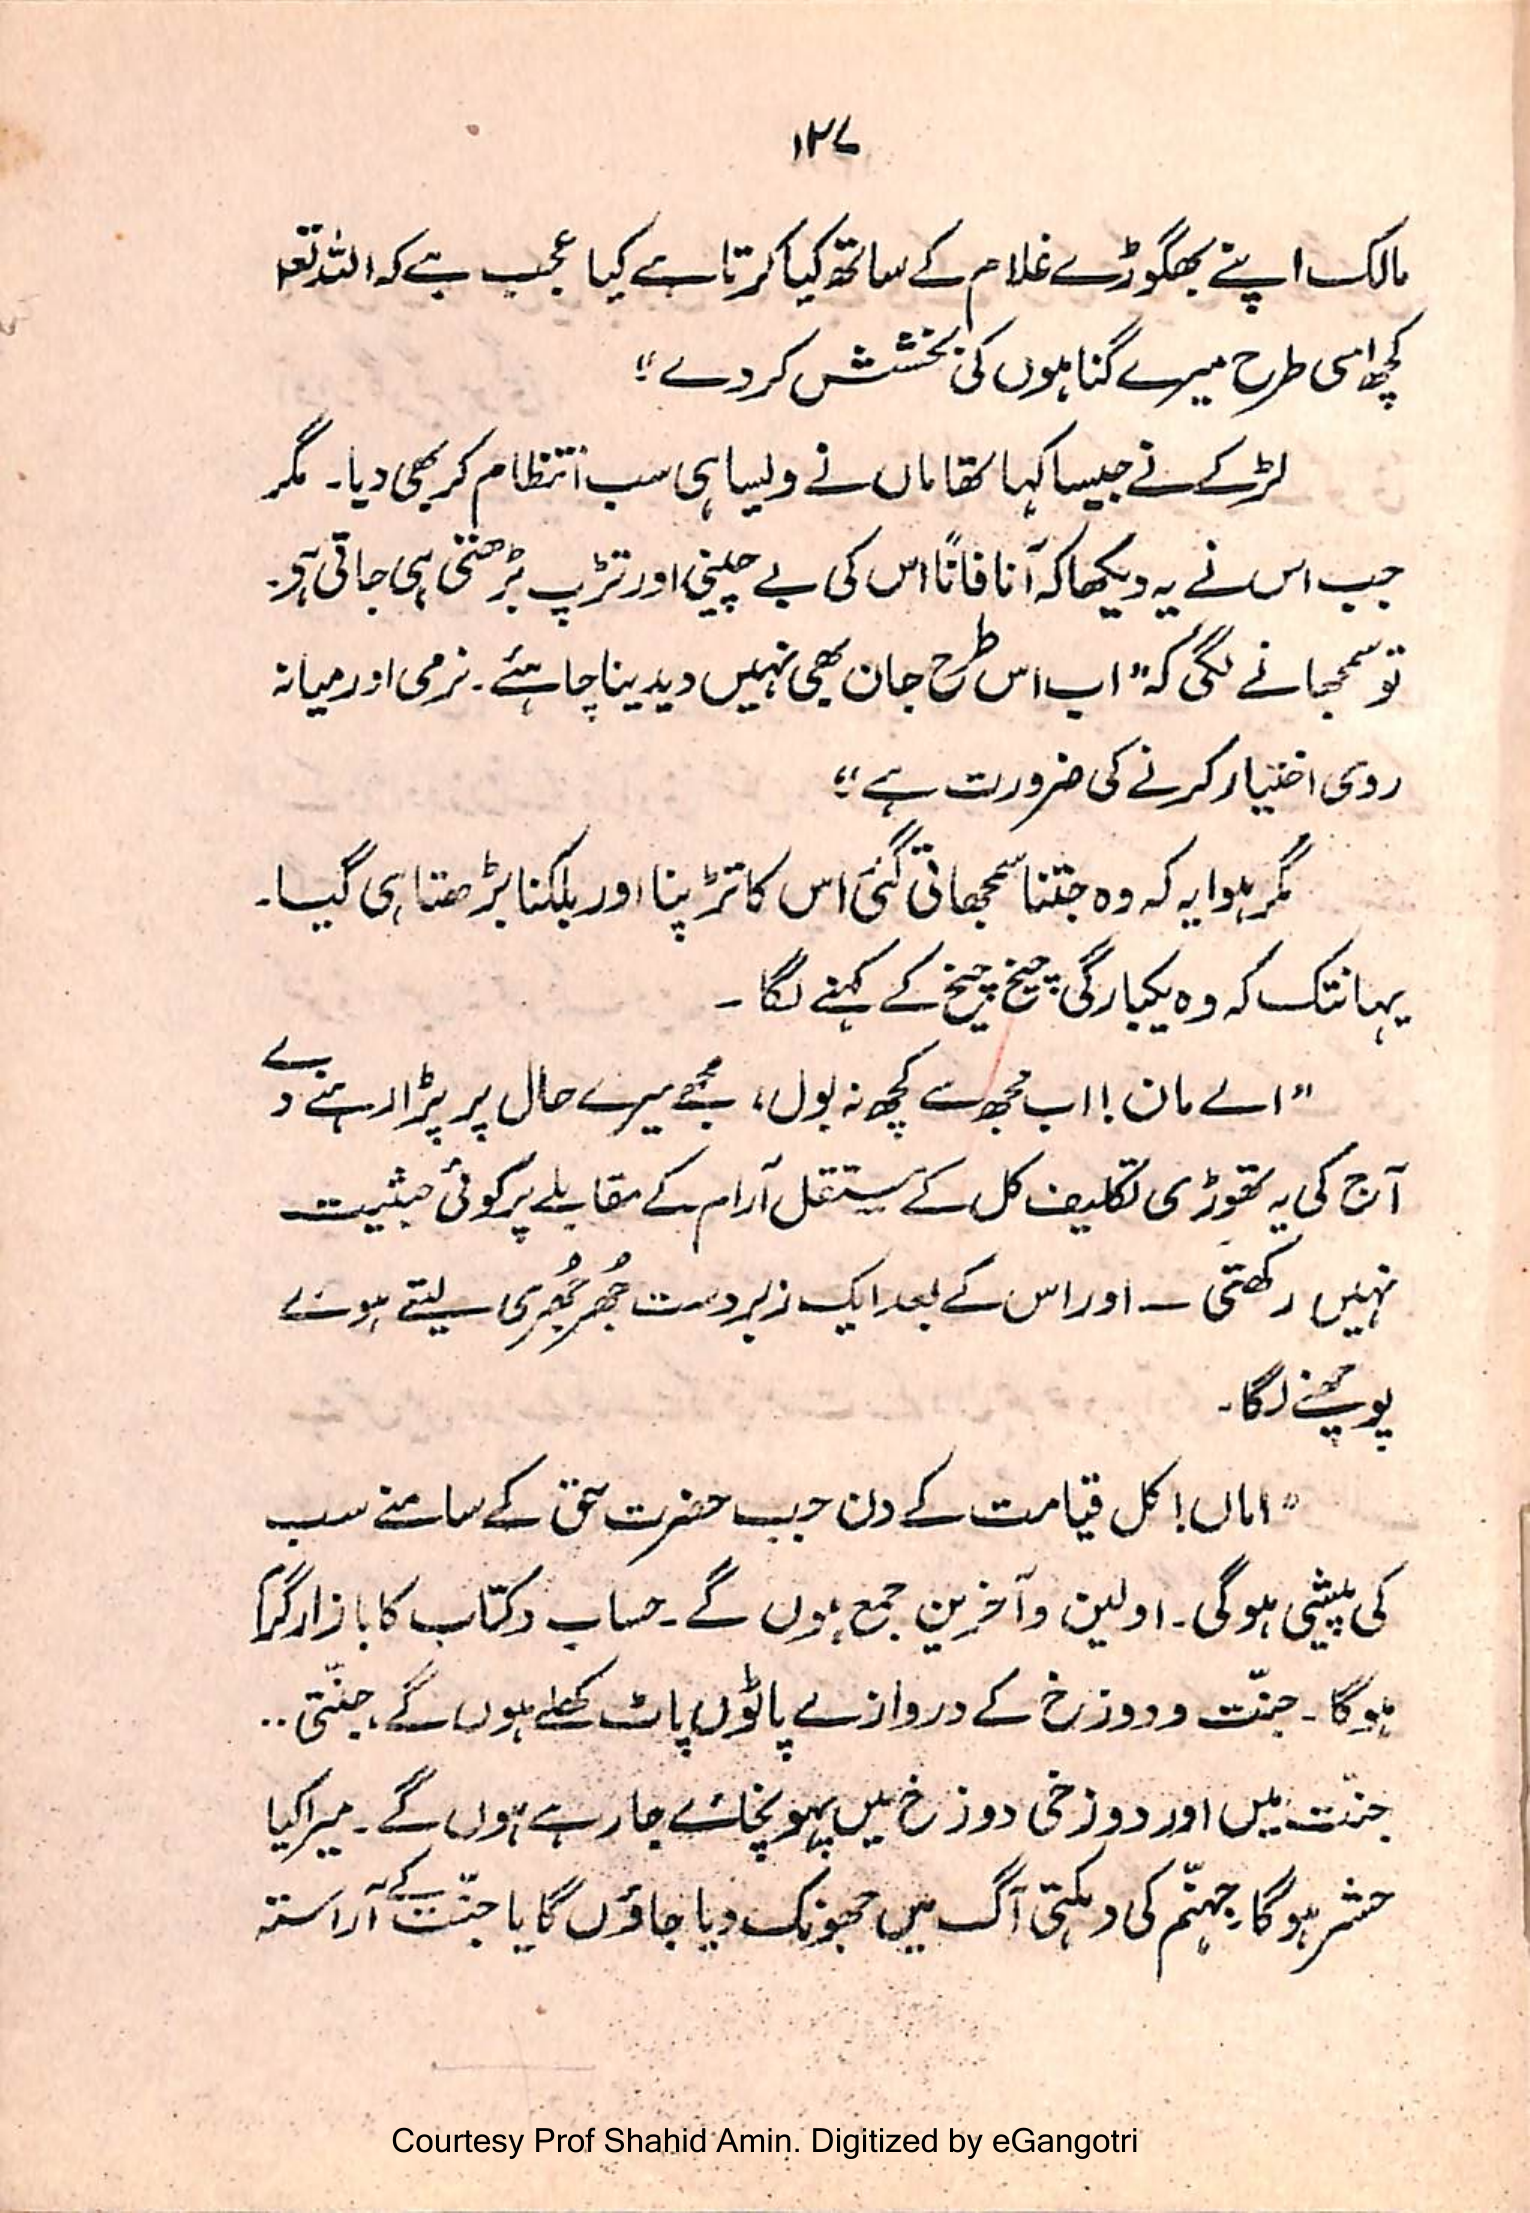 ۱۲۷
مالک اپنے بھگوڑے غلام کے ساتھ کیا کرتا ہے کیا عجب ہے کہ اللہ تعہ
کچھ اسی طرح میرے گناہوں کی بخشش کر دے"
لڑکے نے جیسا کہا تھا ماں نے ویسا ہی سب انتظام کر بھی دیا۔ مگر
جب اس نے یہ دیکھا کہ آناً فاناً اس کی بے چینی اور تڑپ بڑھتی ہی جاتی ہی۔
تو سمجھانے لگی کہ "اب اس طرح جان بھی نہیں دیدینا چاہئے۔ نرمی اور میانہ
روی اختیار کرنے کی ضرورت ہے"
مگر ہوا یہ کہ وہ جتنا سمجھاتی گئی اس کا تڑپنا اور بلکنا بڑھتا ہی گیا۔
یہانتک کہ وہ یکبارگی چیخ چیخ کے کہنے لگا۔
"اے مان! اب مجھ سے کچھ نہ بول، مجھے میرے حال پر پڑا رہنے دے
آج کی یہ تھوڑی تکلیف کل کے مستقل آرام کے مقابلے پر کوئی حیثیت
نہیں رکھتی ۔ اور اس کے بعد ایک زبردست جُھرجُھری لیتے ہوئے
پوچھنے لگا۔
"اماں! کل قیامت کے دن جب حضرت حق کے سامنے سب
کی پیشی ہوگی۔ اولین و آخرین جمع ہوں گے۔ حساب و کتاب کا بازار گرم
ہوگا۔ جنّت و دوزخ کے دروازے پاٹوں پاٹ کھلے ہوں گے، جنّتی..
جنّت میں اور دوزخی دوزخ میں پہونچائے جا رہے ہوں گے۔ میرا کیا
حشر ہوگا، جہنّم کی دہکتی آگ میں جھونک دیا جاؤں گا یا جنّت کے آراستہ
Courtesy Prof Shahid Amin. Digitized by eGangotri